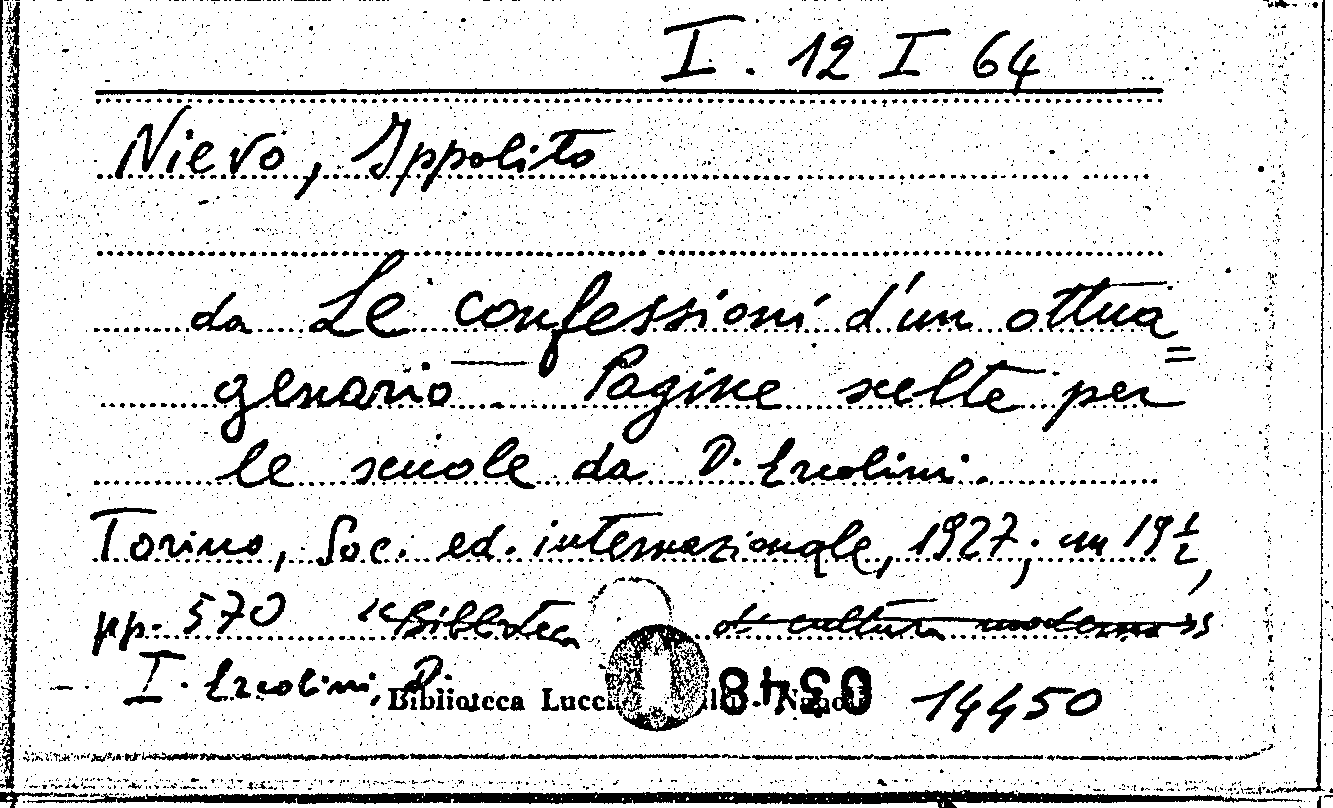 I. 12 I 64
Nievo, Ippolito
da Le confessioni d'un ottua=
genario. Pagine scelte per
le scuole da D. Ercolini.
Torino, Soc. ed. internazionale, 1927; cm 19 1/2,
pp. 570 "Biblioteca di cultura moderna"
I. Ercolini, D.
Biblioteca Lucc - Napoli 0348 14450